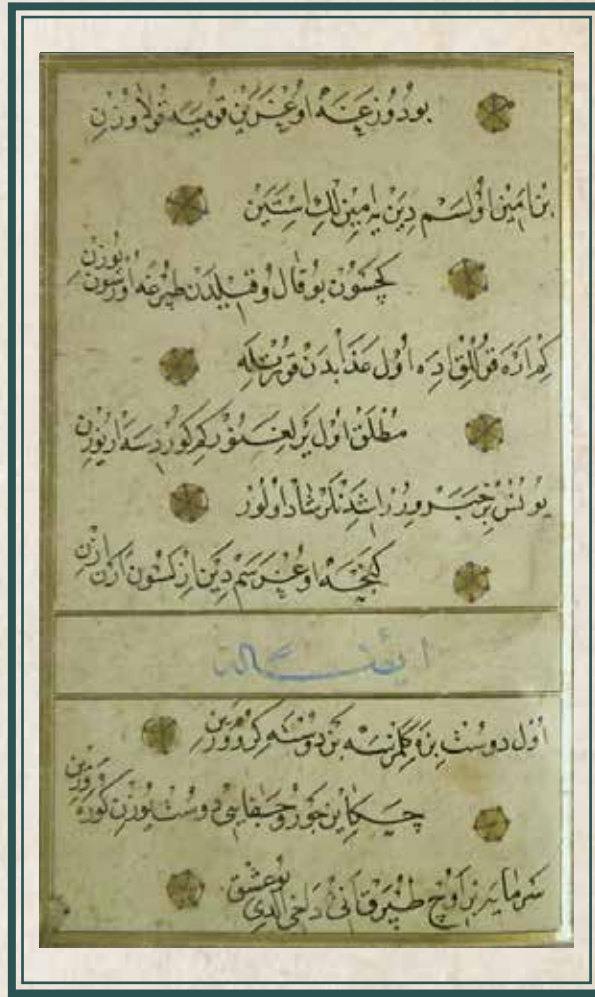 بودوزغنه اوغرین قومیه قولاوزن
بن امین اولسم دین یرامینلك استین
كچسون بو قال و قیلدن طپرغه اورسون یوزن
كم ارده قوللق اده اول عذابدن قورتله
مطلق اول یرلغنور كم كوررسه ار یوزن
یونس بر خبر ویرر اشدنلر شاد اولور
اوغرسم دین ازكسون ارن ازن
ایضا له
اول دوست بزه گلمزسه بن دوسته گرو ورین
چكاین جور و جفایی دوست یوزن كوره ورین
سرمایه بر اوج طپرق انی دخی الدی بو عشق